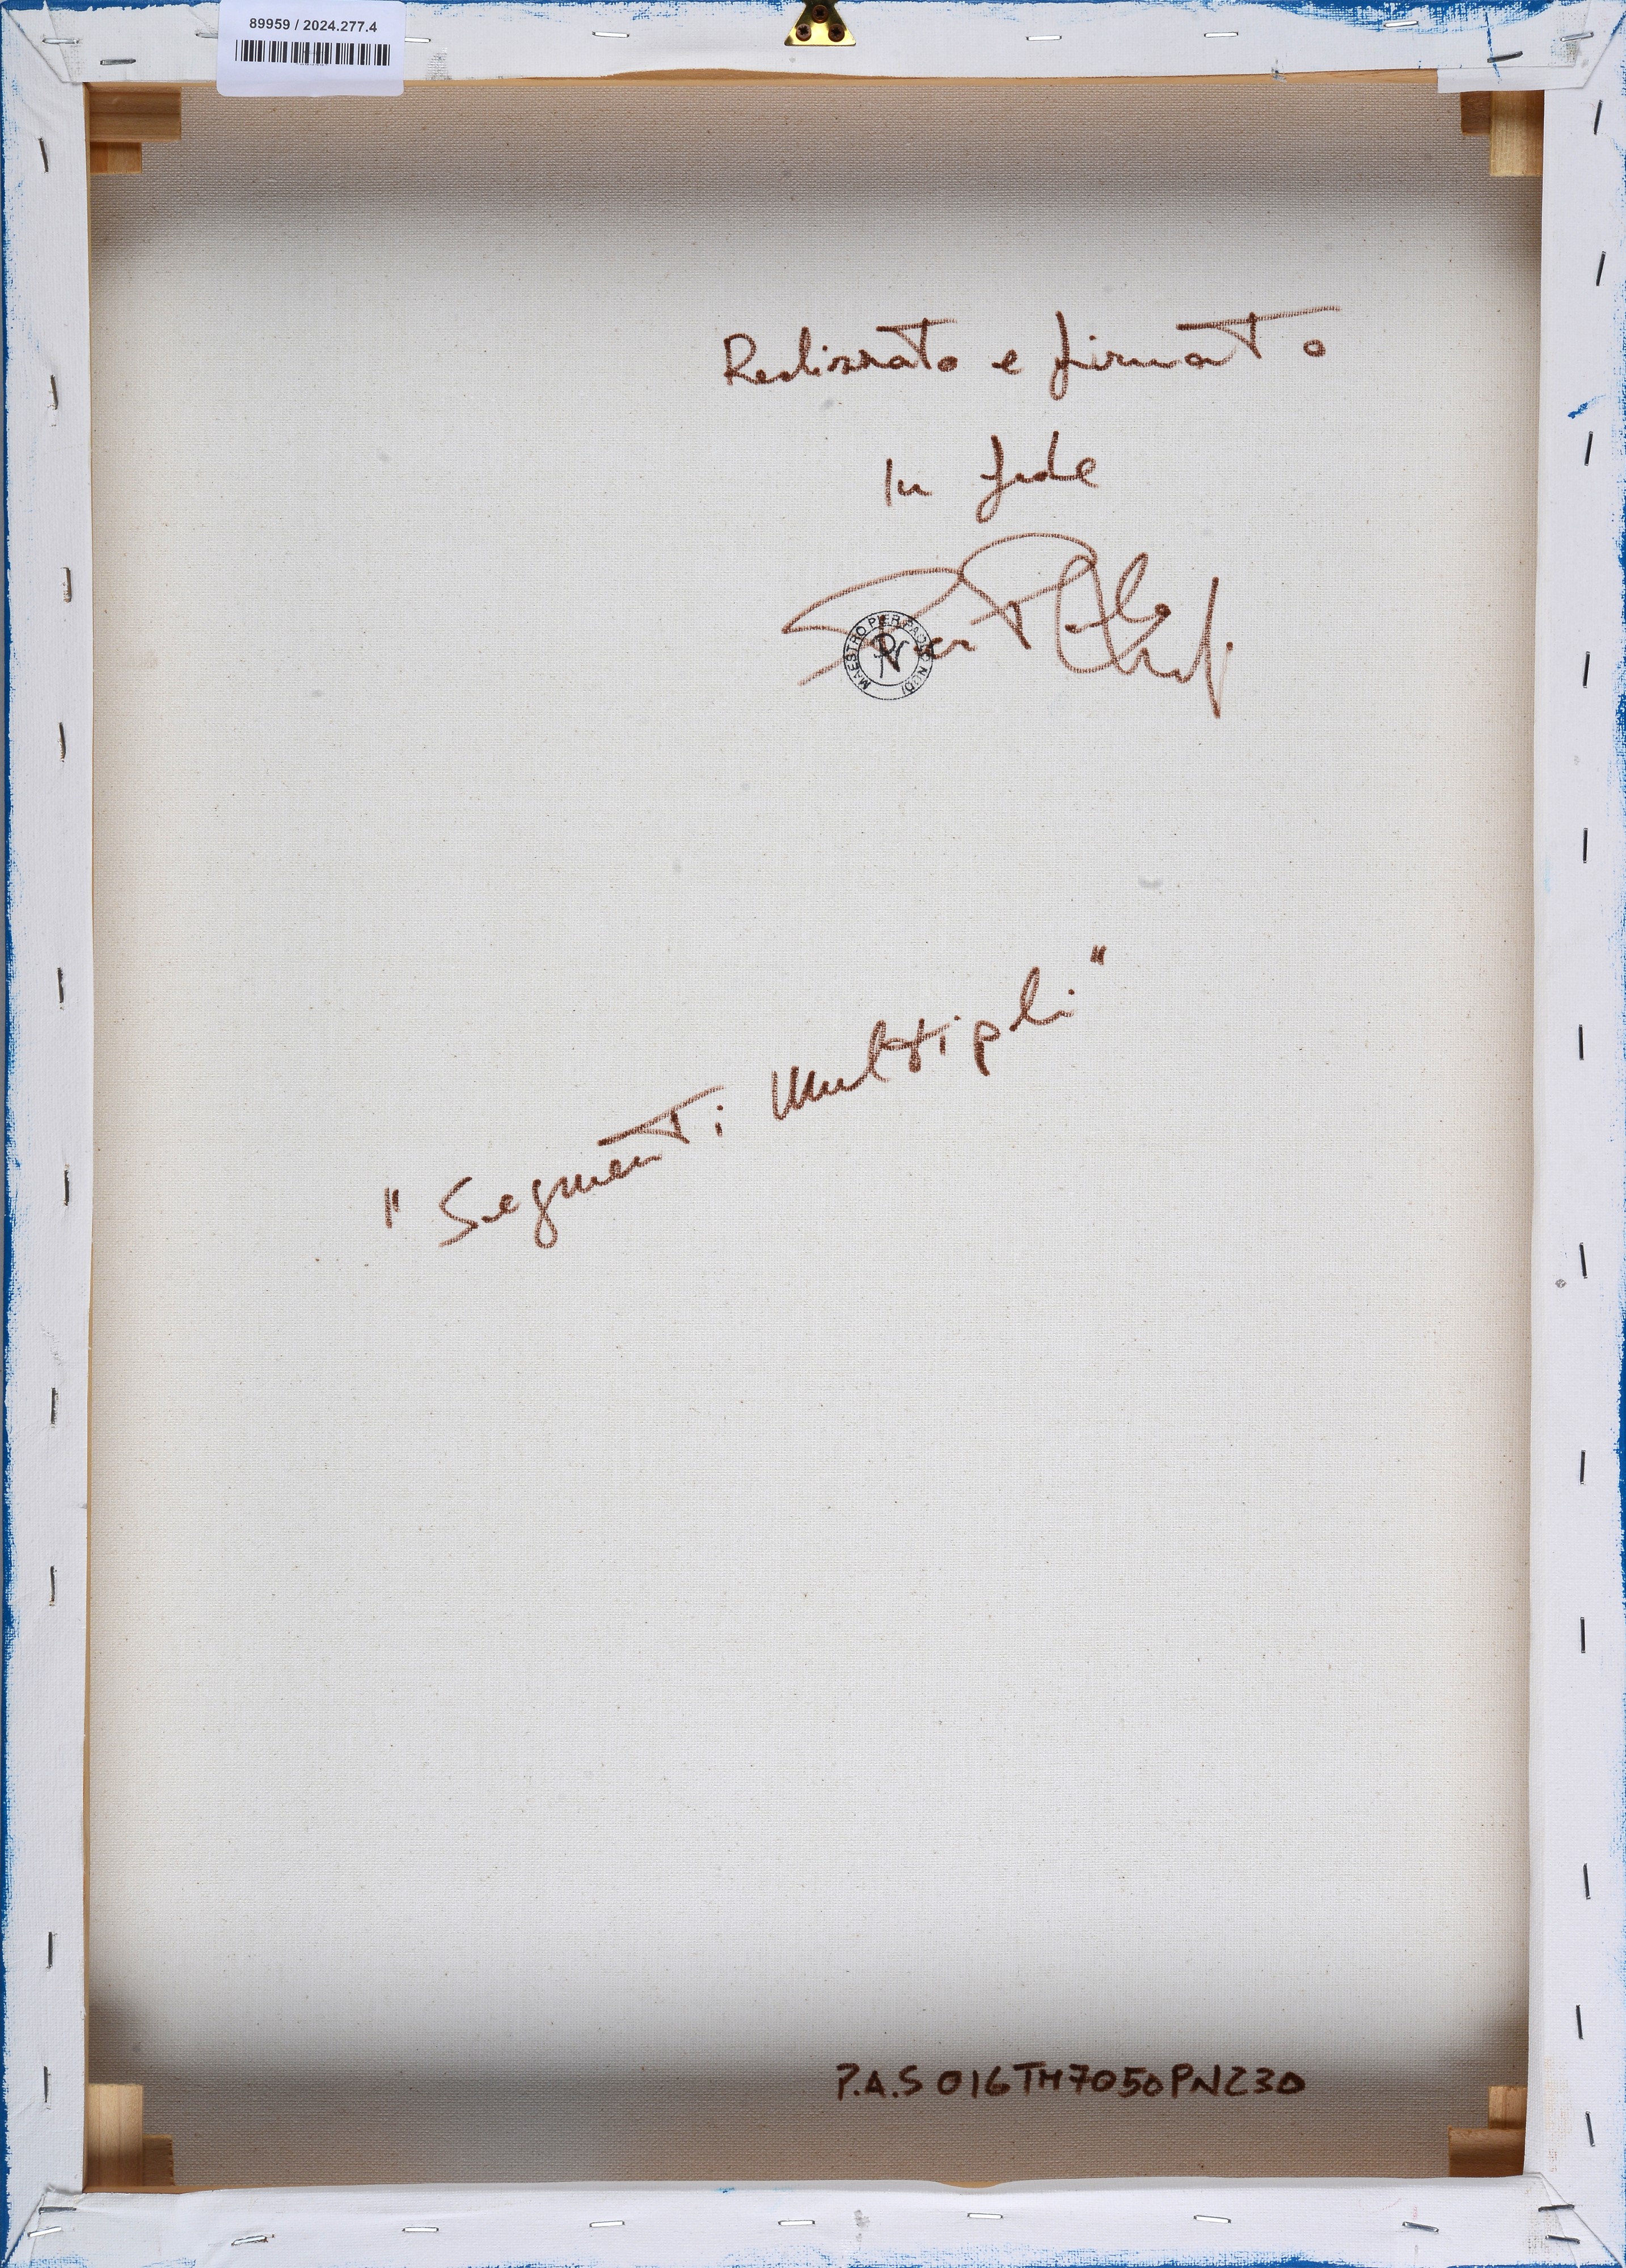 89959 / 2024.277.4
Realizzato e firmato
In fede
Pier Paolo Nudi
MAESTRO PIER PAOLO NUDI
"Segmenti Multipli"
P.A.S 016TM7050PN230